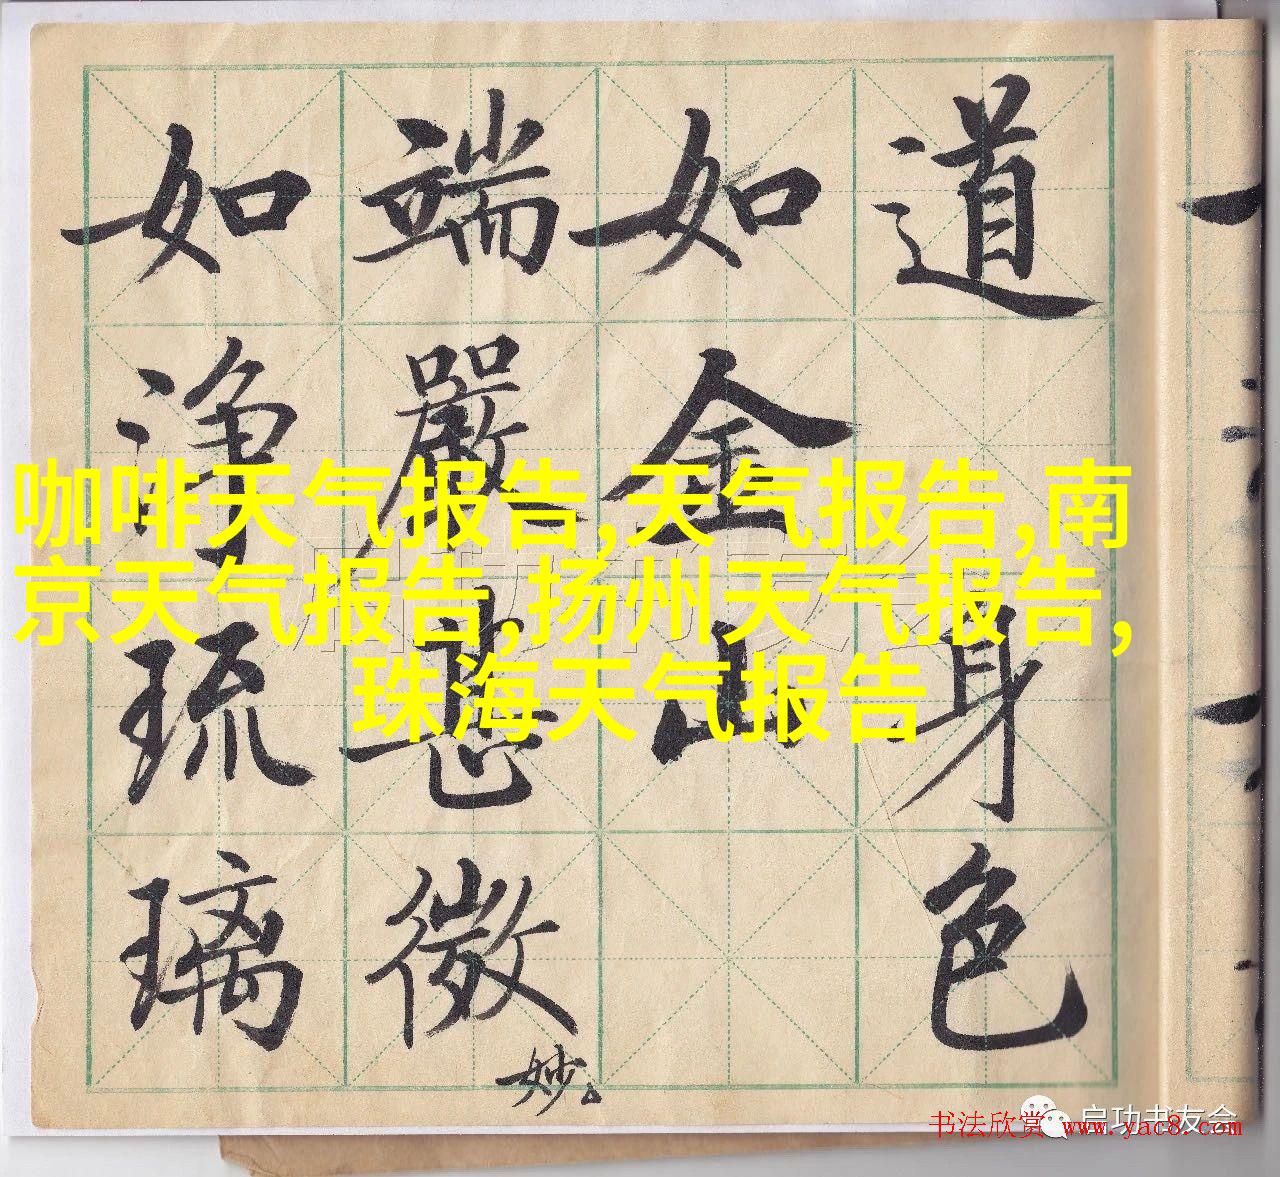 道身色
如金山
端嚴甚微
妙
如净琉璃
咖啡天气报告,天气报告,南
京天气报告,扬州天气报告,
珠海天气报告
启功书友会
书法欣赏 www.yac8.com